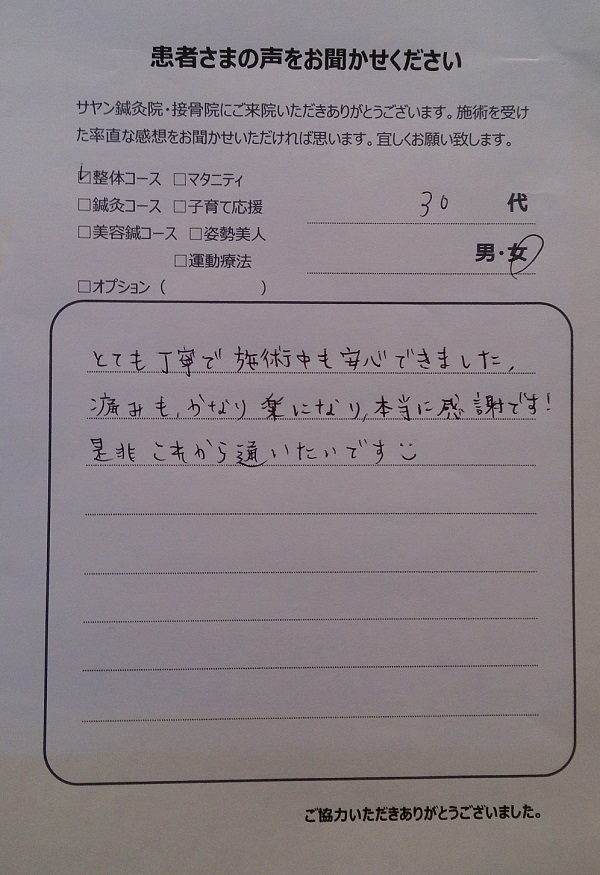 患者さまの声をお聞かせください
サヤン鍼灸院・接骨院にご来院いただきありがとうございます。施術を受け
た率直な感想をお聞かせいただければ思います。宜しくお願い致します。
☑整体コース □マタニティ
□鍼灸コース □子育て応援
30 代
□美容鍼コース □姿勢美人
男・女
□運動療法
□オプション ( )
とても丁寧で施術中も安心できました。
痛みも、かなり楽になり、本当に感謝です!
是非これから通いたいです
ご協力いただきありがとうございました。